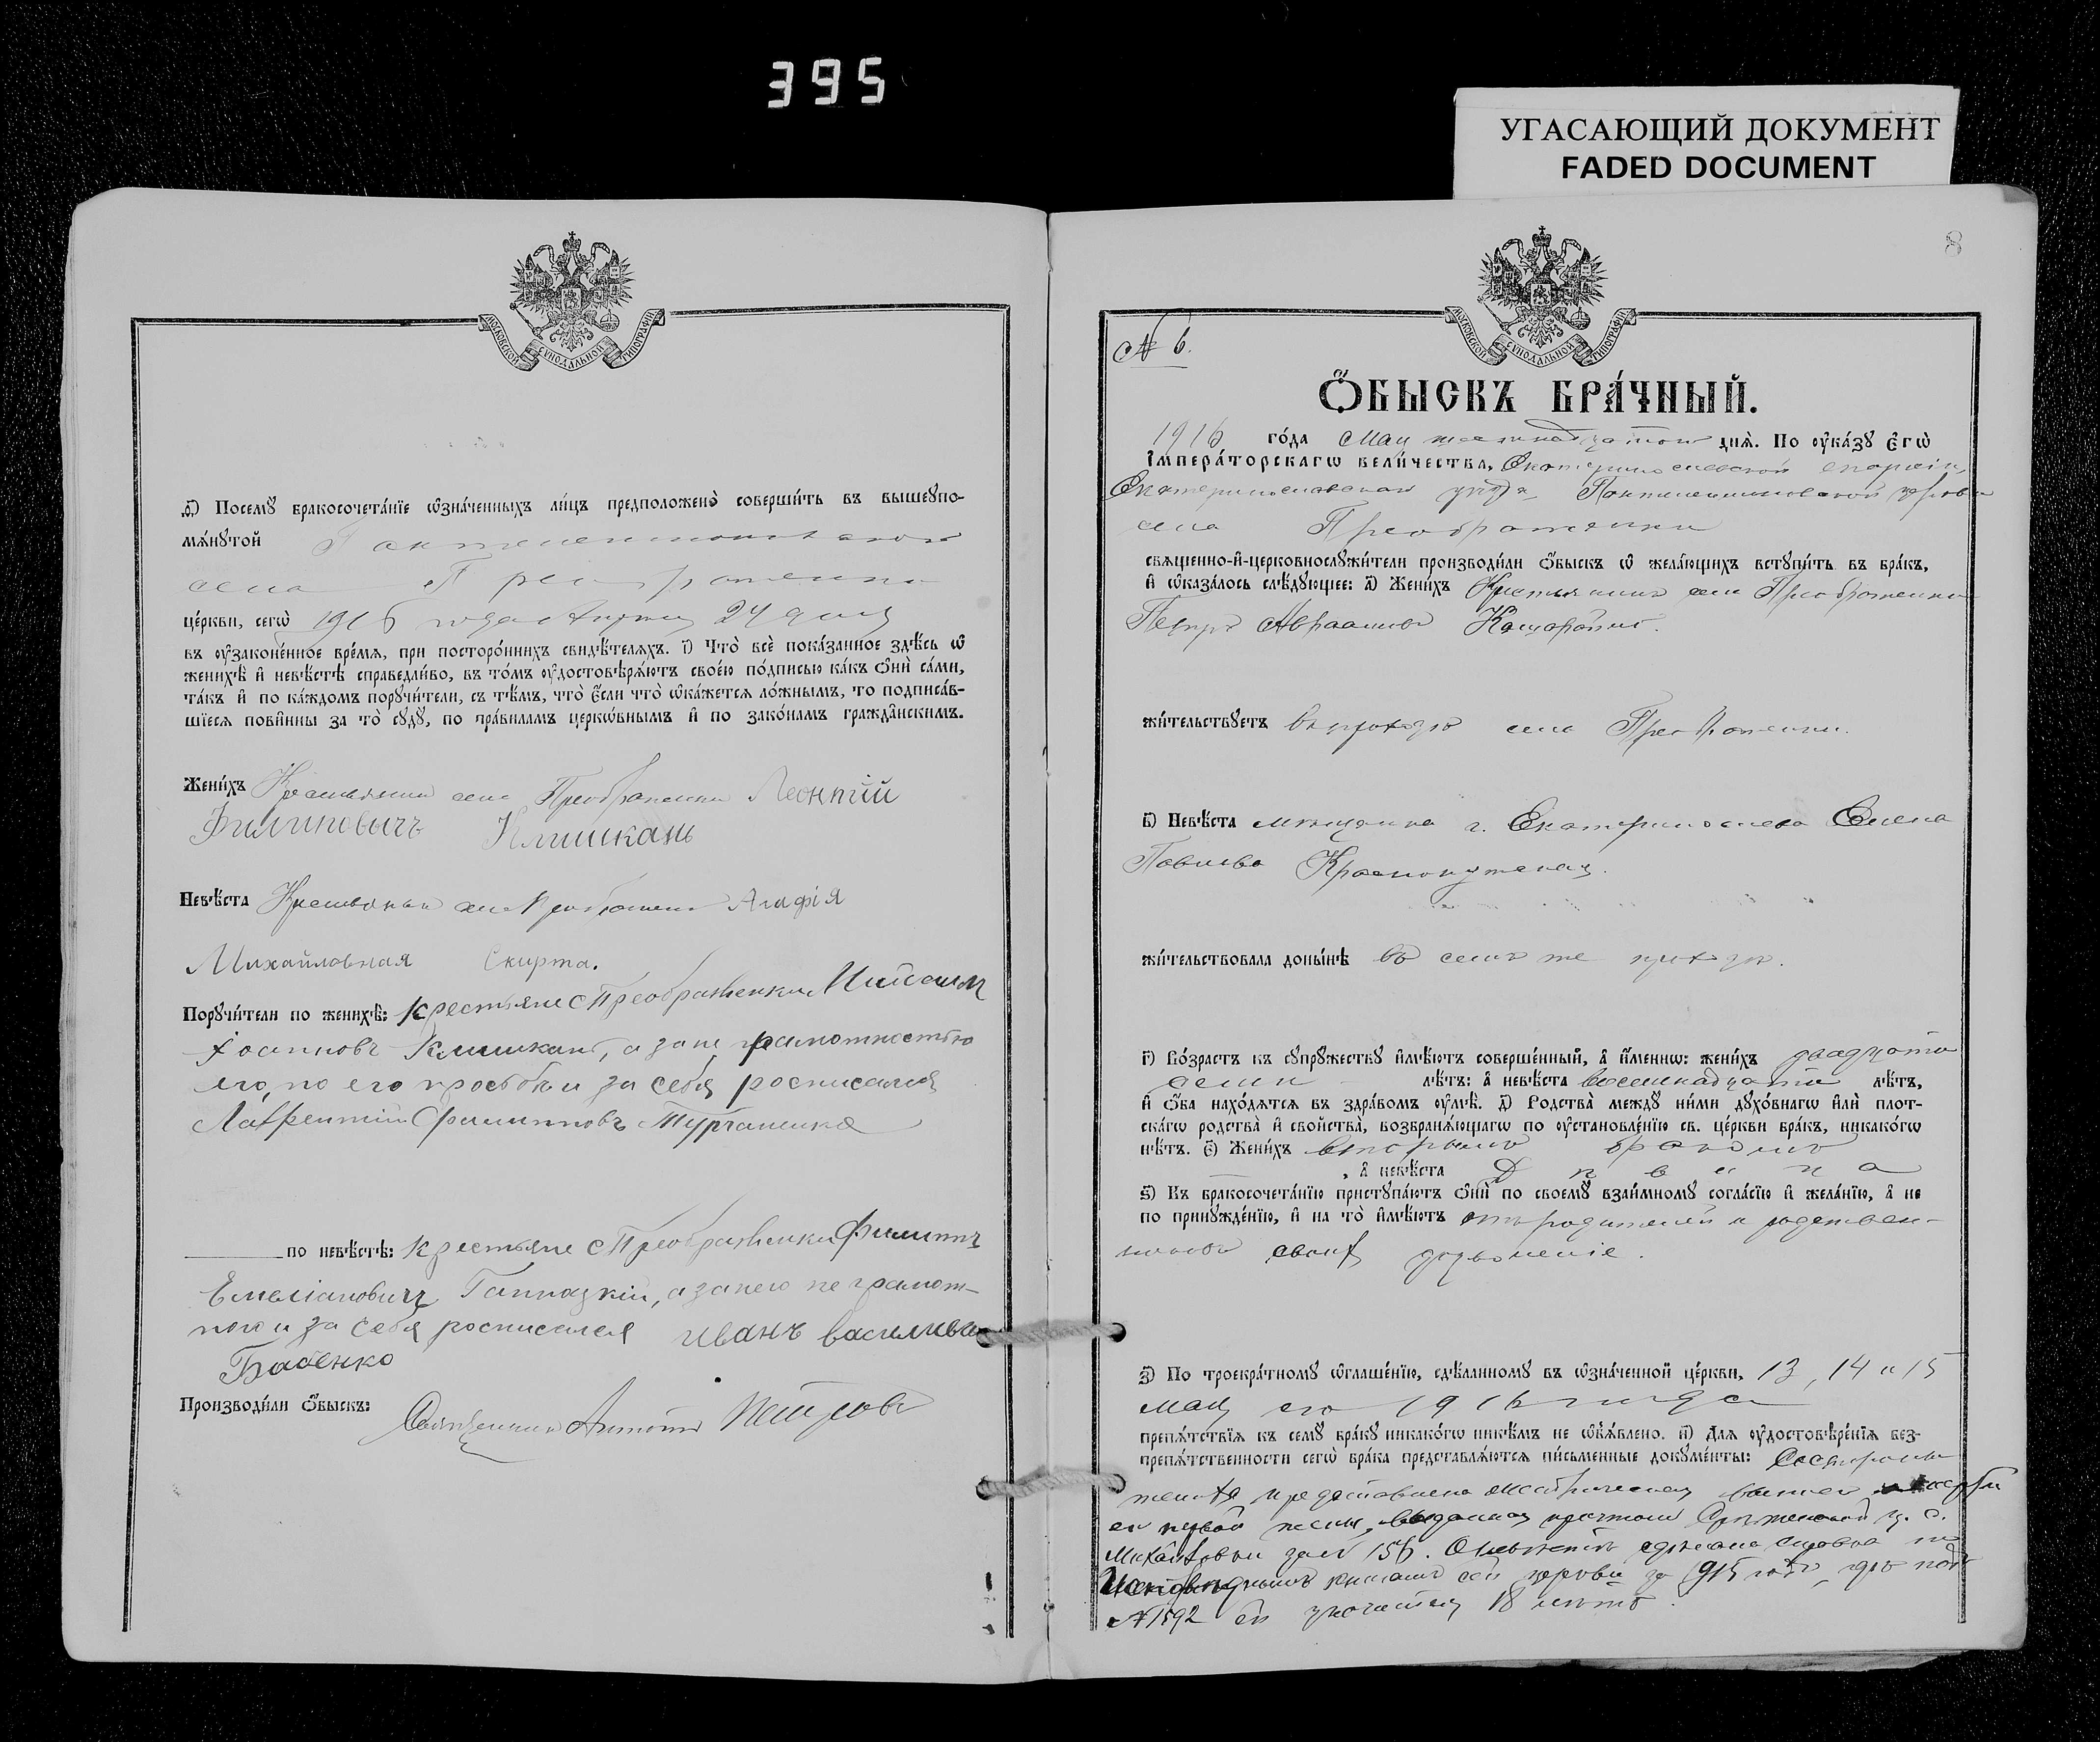 395
УГАСАЮЩИЙ ДОКУМЕНТ
FADED DOCUMENT
МОСКОВСКОЙ СѴНОДАЛЬНОЙ ТИПОГРАФІИ
д҃) Посемꙋ бракосочета́нїе ѡ҆зна́ченныхъ ли́цъ предположено̀ соверши́ть въ вышеꙋпо-
мѧ́нꙋтой Пантелеимоновской
села Преображенки
це́ркви, сегѡ̀ 1916 года Апрѣля 24 дня
въ ᲂу҆зако́нённое вре́мѧ, при посторо́ннихъ свидѣ́телѧхъ. і҃) Что̀ всѐ пока́занное здѣ́сь ѡ҆
женихѣ̀ и҆ невѣ́стѣ справедли́во, въ то́мъ ᲂу҆достовѣрѧ́ютъ свое́ю по́дписью ка́къ ѻ҆нѝ са́ми,
та́къ и҆ по ка́ждомъ порꙋчи́тели, съ тѣ́мъ, что̀ є҆́сли что̀ ѡ҆ка́жетсѧ ло́жнымъ, то подписа́в-
шїесѧ пови́нны за то̀ сꙋдꙋ̀, по пра́виламъ церкѡ́внымъ и҆ по зако́намъ гражда́нскимъ.
Жени́хъ Крестьянин села Преображенки Леонтій
Филиповичъ Клишкань
Невѣ́ста Крестьянка села Преображенки Агафія
Михайловная Скирта.
Порꙋчи́тели по женихѣ̀: крестьяне с Преображенки
Іоанновъ Клишкань, а за не грамотностью
его, по его просьбѣ и за себя росписался
Лаврентій Филипповъ
по невѣ́стѣ: крестьяне с Преображенки Филиппъ
Емеліановичъ а за него не грамот-
ного и за себя росписался иванъ василиевъ
Бабенко
Производи́ли ѻ҆́быскъ: Священник Антоній
8
МОСКОВСКОЙ СѴНОДАЛЬНОЙ ТИПОГРАФІИ
№ 6.
Ѻ҆́БЫСКЪ БРА́ЧНЫЙ.
1916 го́да Мая шестнадцатого днѧ̀. По ᲂу҆ка́зꙋ є҆гѡ̀
і҆мпера́торскагѡ вели́чества, Екатеринославской епархіи,
Екатеринославскаго уѣзда, Пантелеимоновской церкви
села Преображенки
свѧщенно-и҆-церковнослꙋжи́тели производи́ли ѻ҆́быскъ ѡ҆ жела́ющихъ встꙋпи́ть въ бра́къ,
и҆ ѡ҆каза́лось слѣ́дꙋющее: а҃) Жени́хъ Крестьянинъ села Преображенки
Петръ Авраамовъ
жи́тельствꙋетъ въ приходѣ села Преображенки.
в҃) Невѣ́ста мѣщанка г. Екатеринослава Елена
Павлова
жи́тельствовала доны́нѣ въ семъ же приходѣ.
г҃) Во́зрастъ къ сꙋпрꙋ́жествꙋ и҆мѣ́ютъ соверше́нный, а҆ и҆́меннѡ: жени́хъ двадцати
семи лѣ́тъ: а҆ невѣ́ста восемнадцати лѣ́тъ,
и҆ ѻ҆́ба нахо́дѧтсѧ въ здра́вомъ ᲂу҆мѣ̀. д҃) Родства̀ междꙋ̀ ни́ми дꙋхо́внагѡ и҆лѝ плот-
ска́гѡ родства̀ и҆ сво́йства̀, возбранѧ́ющагѡ по ᲂу҆становле́нїю св. це́ркви бра́къ, никако́гѡ
нѣ́тъ. є҃) Жени́хъ вторымъ бракомъ
, а҆ невѣ́ста дѣвица
ѕ҃) Къ бракосочета́нїю пристꙋпа́ютъ ѻ҆нѝ по своемꙋ̀ взаи́мномꙋ согла́сїю и҆ жела́нїю, а҆ не
по принꙋжде́нїю, и҆ на то̀ и҆мѣ́ютъ отъ родителей и родствен-
никовъ своихъ дозволеніе.
з҃) По троекра́тномꙋ ѡ҆глаше́нїю, сдѣ́ланномꙋ въ ѡ҆зна́ченной це́ркви, 13, 14 и 15
Мая сего 1916 года
препѧ́тствїѧ къ семꙋ̀ бра́кꙋ никако́гѡ никѣ́мъ не ѡ҆бъѧ́влено. и҃) Длѧ ᲂу҆достовѣре́нїѧ без-
препѧ́тственности сегѡ̀ бра́ка представлѧ́ютсѧ пи́сьменные докꙋме́нты: Со стороны
жениха представлена метрическая о смерти
его первой жены, выданная причтомъ ц. с.
Михайловки за № 156. О невѣстѣ сдѣлана справка по
Исповѣднымъ книгамъ сей церкви за 1915 годъ, гдѣ подъ
№ 1592 ей значится 18 лѣтъ.